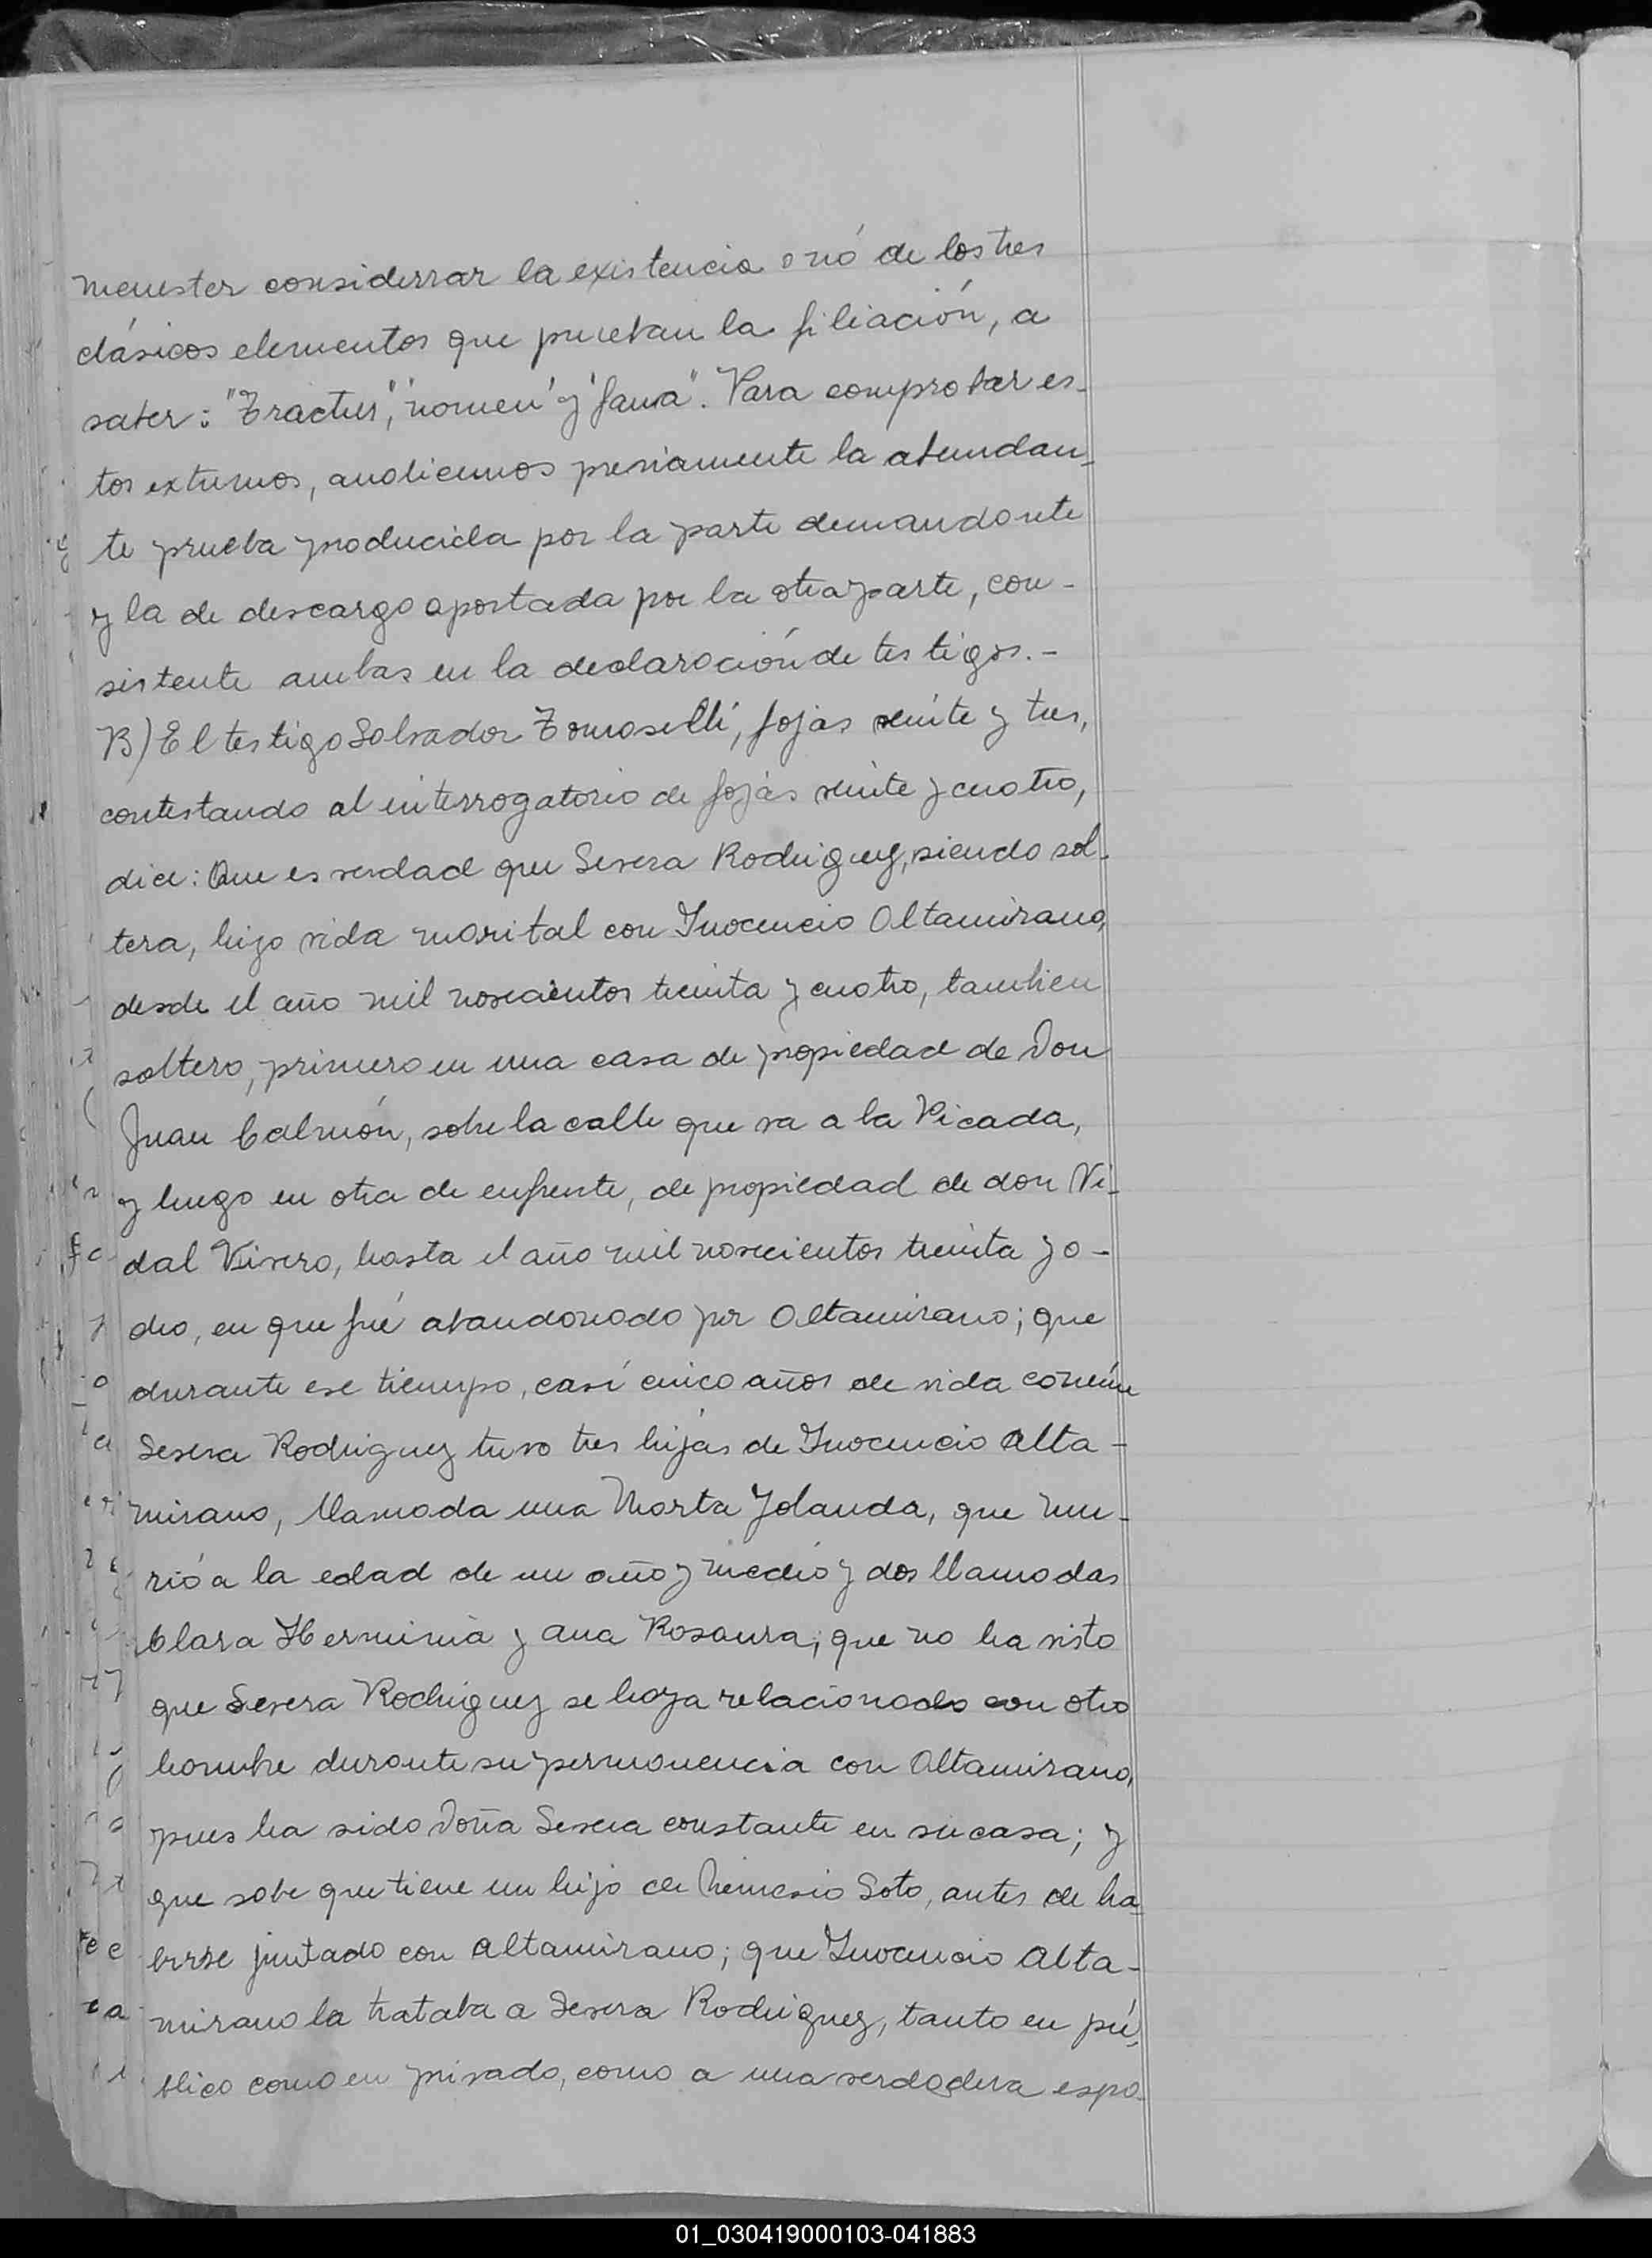 menester considerrar la existencia o nó de los tres
clásicos elementos que prueban la filiación, a
saber: "Tractus", "nomen" y "fama". Para comprobar es-
tos extremos, analicemos previamente la abundan-
te prueba producida por la parte demandante
y la de descargo aportada por la otra parte, con-
sistente ambas en la declaración de testigos.-
B) El testigo Salvador Tomaselli, fojas veinte y tres,
contestando al interrogatorio de fojas veinte y cuatro,
dice: Que es verdad que Severa Rodriguez, siendo sol-
tera, hizo vida marital con Inocencio Altamirano,
desde el año mil novecientos treinta y cuatro, tambien
soltero, primero en una casa de propiedad de Don
Juan Calmón, sobre la calle que va a la Picada,
y luego en otra de enfrente, de propiedad de don Vi-
dal Vivero, hasta el año mil novecientos treinta y o-
cho, en que fué abandonado por Altamirano; que
durante ese tiempo, casí cinco años de vida común
Severa Rodriguez tuvo tres hijas de Inocencio Alta-
mirano, llamada una Marta Yolanda, que mu-
rió a la edad de un año y medio y dos llamadas
Clara Herminia y Ana Rosaura; que no ha visto
que Severa Rodriguez se haya relacionado con otro
hombre durante su permanencia con Altamirano,
pues ha sido Doña Severa constante en su casa; y
que sabe que tiene un hijo de Nemesio Soto, antes de ha-
berse juntado con Altamirano; que Inocencio Alta-
mirano la trataba a Severa Rodriguez, tanto en pú-
blico como en privado, como a una verdadera espo-
01_030419000103-041883